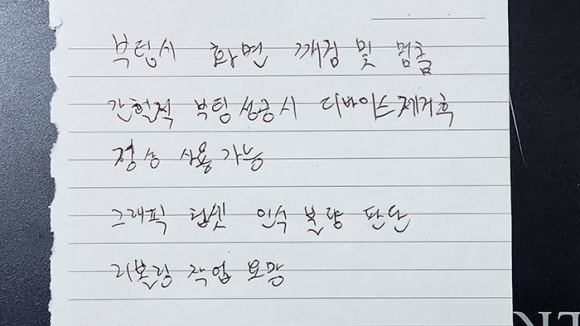 부팅시 화면 깨짐 및 멈춤
간헐적 부팅성공시 디바이스제거후
정상 사용가능
그래픽 칩셋 인식 불량 판단
리볼링 작업 요망